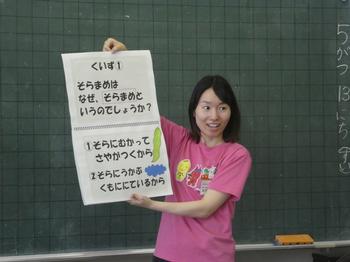 くいず1
そらまめは
なぜ、そらまめと
いうのでしょうか?
①そらにむかって
さやがつくから
②そらにうかぶ
くもににているから
5がつ13にち